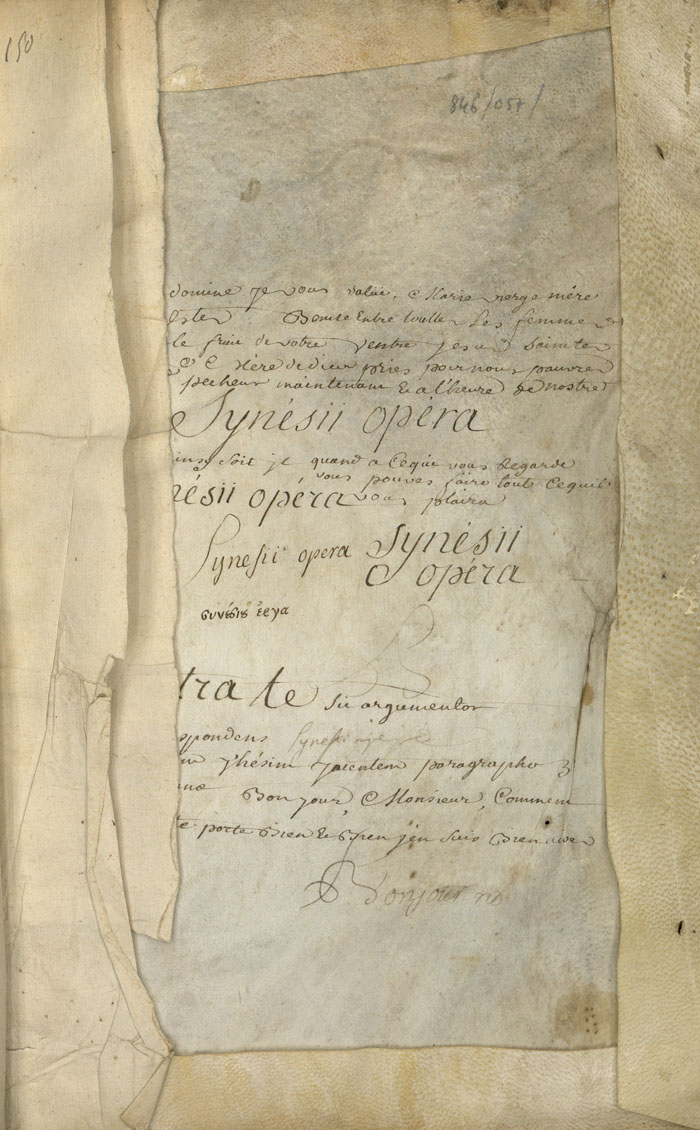 150
846/057/
domine je vous saluë, Marie vierge mére
Benite Entre toutte Les femme
le fruit de votre ventre jesus Sainte
Mére de dieu priés pour nous pauvre
pecheur maintenant Et a l'heure de nostre
Synésii opéra
ins, Soit je quand a Ceque vous Regarde
vous pouves faire tout Cequil
ésii opéra vous plaira
Synesii opera Synésii
opéra
συνέσις ἔργα
tra te sic argumentor
spondens
thésim jacentem paragrapho 3
Bonjour, Monsieur, Comment
te porte Bien Et Bien j'en suis Bien
Bonjour